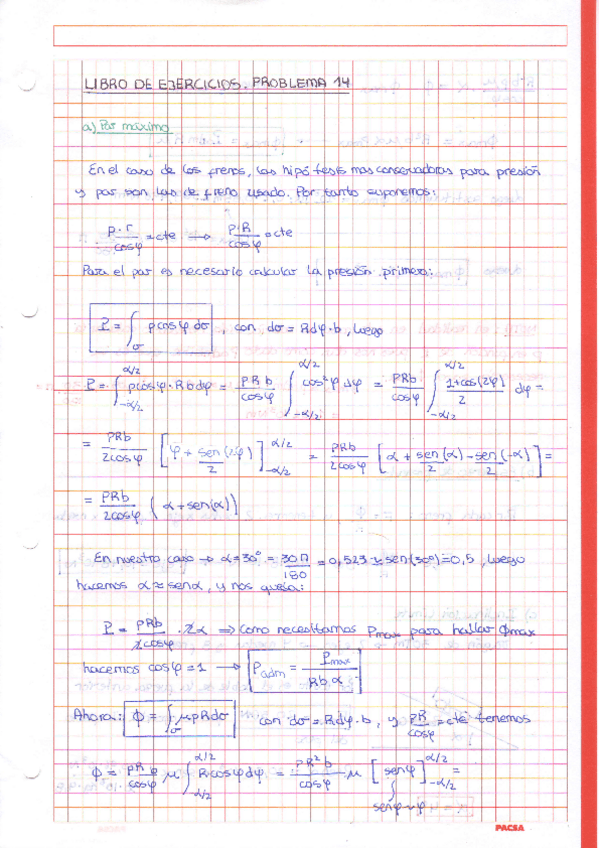 LIBRO DE EJERCICIOS. PROBLEMA 14
a) Par máximo
En el caso de los frenos, las hipótesis mas conservadoras para presión
y par son las de freno usado. Por tanto suponemos:
p·r/cosφ = cte → p·R/cosφ = cte
Para el par es necesario calcular la presión primero:
P = ∫_σ p cosφ dσ , con dσ = Rdφ·b, luego
P = ∫_{-α/2}^{α/2} p cosφ · Rbdφ = PRb/cosφ ∫_{-α/2}^{α/2} cos²φ dφ = PRb/cosφ ∫_{-α/2}^{α/2} 1+cos(2φ)/2 dφ =
= PRb/2cosφ [φ + sen(2φ)/2]_{-α/2}^{α/2} = PRb/2cosφ [α + sen(α)/2 - sen(-α)/2] =
= PRb/2cosφ (α + sen(α))
En nuestro caso → α = 30° = 30π/180 = 0,523 ≃ sen(30°) = 0,5 , luego
hacemos α ≈ senα, y nos queda:
P = PRb/2cosφ · 2α ⇒ Como necesitamos Pmax para hallar ϕmax
hacemos cosφ = 1 → Padm = Pmax/Rbα
Ahora: ϕ = ∫_σ μpRdσ con dσ = Rdφ·b, y pR/cosφ = cte tenemos
ϕ = pRb/cosφ μ ∫_{-α/2}^{α/2} R·cosφdφ = PR²b/cosφ μ [senφ]_{-α/2}^{α/2} =
senφ≈φ
PACSA